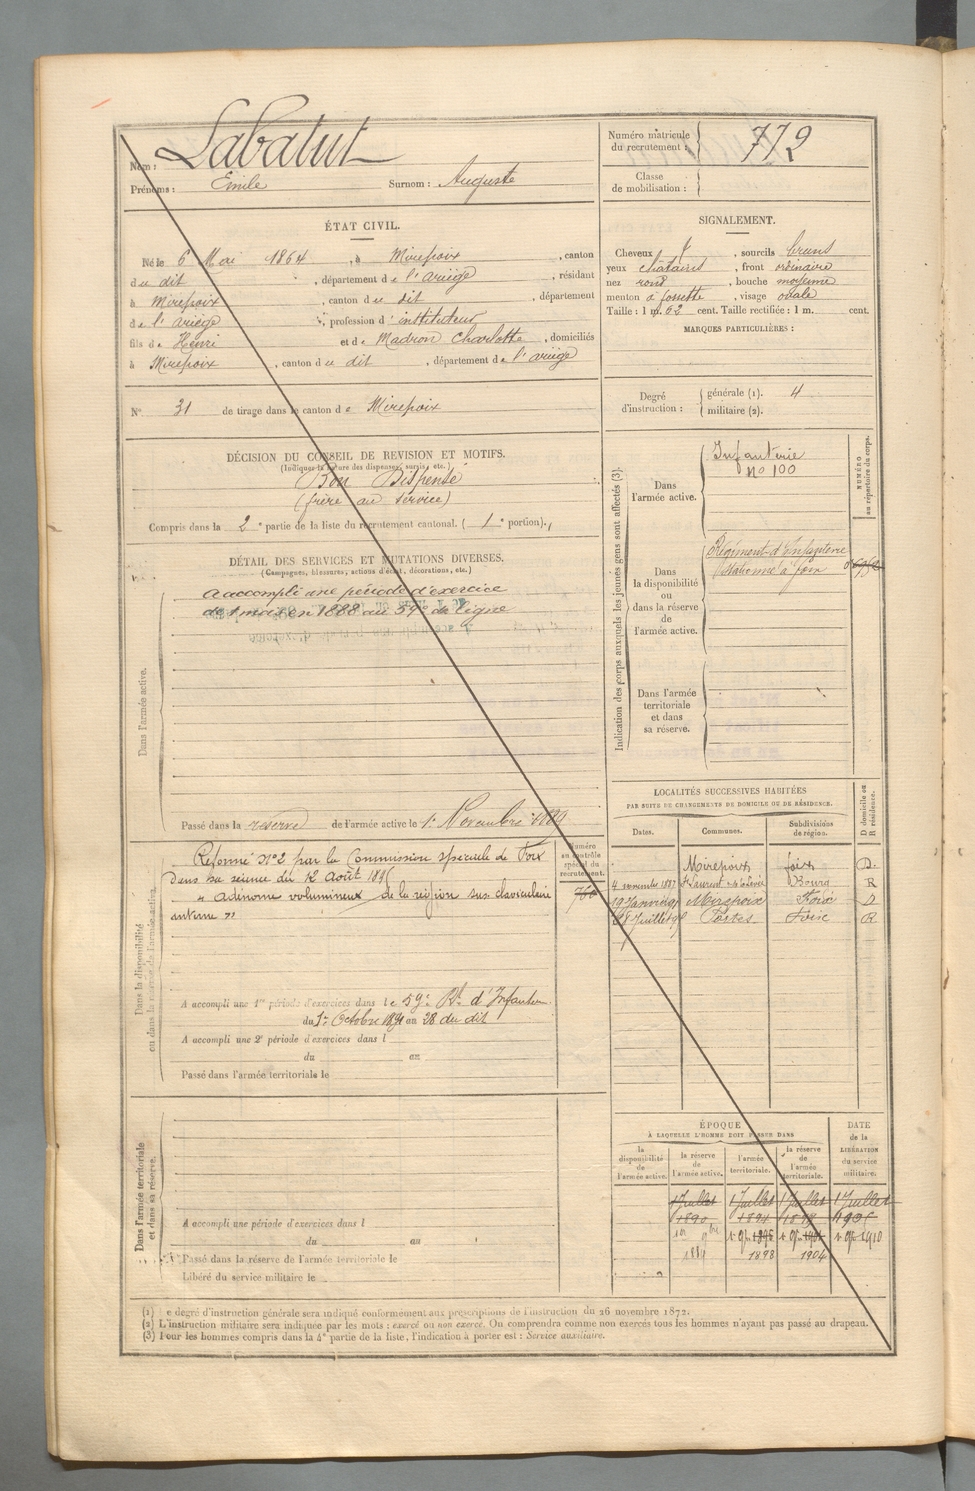 Nom : Labatut
Prénoms : Emile Surnom : Auguste
Numéro matricule
du recrutement : 772
Classe
de mobilisation :
ÉTAT CIVIL.
Né le 6 Mai 1864, à Mirepoix, canton
du dit, département de l'ariège, résidant
à Mirepoix, canton du dit, département
de l'ariège, profession d'instituteur
fils de Henri et de Madron Charlotte, domiciliés
à Mirepoix, canton du dit, département de l'ariège
N° 31 de tirage dans le canton de Mirepoix
SIGNALEMENT.
Cheveux, sourcils bruns
yeux chatains, front ordinaire
nez rond, bouche moyenne
menton à fossette, visage ovale
Taille : 1 m. 62 cent. Taille rectifiée : 1 m. cent.
MARQUES PARTICULIÈRES :
Degré
d'instruction :
générale (1). 4
militaire (2).
DÉCISION DU CONSEIL DE REVISION ET MOTIFS.
(Indiquer la nature des dispenses, sursis, etc.)
Bon Dispensé
(frère au service)
Compris dans la 2e partie de la liste du recrutement cantonal. (1e portion).
DÉTAIL DES SERVICES ET MUTATIONS DIVERSES.
(Campagnes, blessures, actions d'éclat, décorations, etc.)
Dans l'armée active.
a accompli une période d'exercice
de 1 mois en 1888 au 59e de ligne
Passé dans la reserve de l'armée active le 1er Novembre 1889
Indication des corps auxquels les jeunes gens sont affectés (3).
NUMÉRO
au répertoire du corps.
Dans
l'armée active.
Infanterie
No 100
Dans
la disponibilité
ou
dans la réserve
de
l'armée active.
Régiment d'Infanterie
stationné à foix
Dans l'armée
territoriale
et dans
sa réserve.
Dans la disponibilité
ou dans la réserve de l'armée active.
Numéro
au contrôle
spécial du
recrutement.
760
Réformé No 2 par la Commission spéciale de Foix
dans sa séance du 12 Août
"adénome volumineux de la région sus claviculaire
A accompli une 1re période d'exercices dans le 59e Rt d'Infanterie
du 1er Octobre 1891 au 28 du dit
A accompli une 2e période d'exercices dans l
du au
Passé dans l'armée territoriale le
LOCALITÉS SUCCESSIVES HABITÉES
PAR SUITE DE CHANGEMENTS DE DOMICILE OU DE RÉSIDENCE.
Dates. Communes. Subdivisions
de région. D domicile ou
R résidence.
Mirepoix foix D.
4 novembre 1887 Bourg R
Mirepoix Foix D
Juillet Portes Foix R
Dans l'armée territoriale
et dans sa réserve.
A accompli une période d'exercices dans l
du au
Passé dans la réserve de l'armée territoriale le
Libéré du service militaire le
ÉPOQUE
À LAQUELLE L'HOMME DOIT PASSER DANS
DATE
de la
LIBÉRATION
du service
militaire.
la
disponibilité
de
l'armée active.
la réserve
de
l'armée active.
l'armée
territoriale.
la réserve
de
l'armée
territoriale.
1 Juillet 1 Juillet 1 Juillet 1 Juillet
1890
1er 9bre 1910
1889 1898 1904
(1) Le degré d'instruction générale sera indiqué conformément aux prescriptions de l'instruction du 26 novembre 1872.
(2) L'instruction militaire sera indiquée par les mots : exercé ou non exercé. On comprendra comme non exercés tous les hommes n'ayant pas passé au drapeau.
(3) Pour les hommes compris dans la 4e partie de la liste, l'indication à porter est : Service auxiliaire.